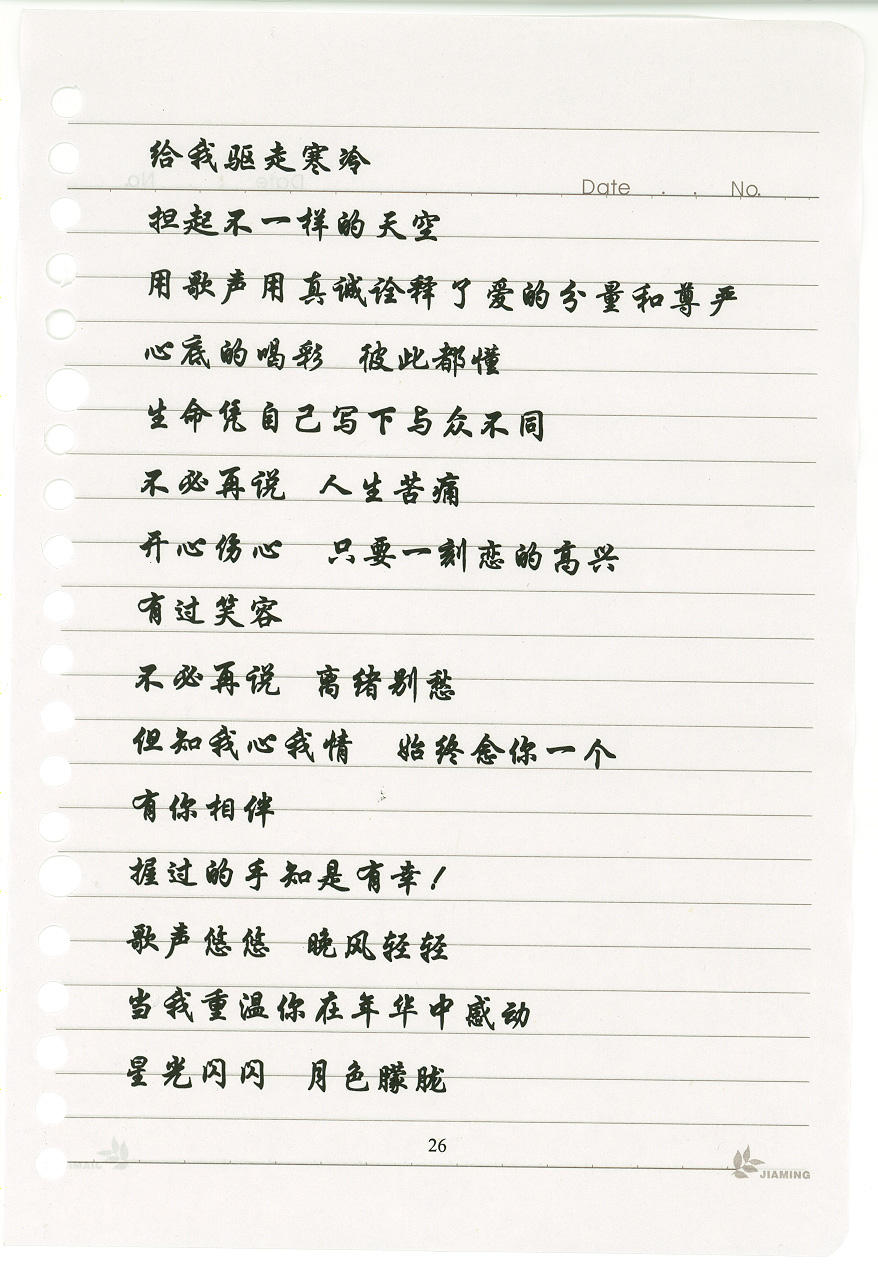 给我驱走寒冷
Date . . No.
担起不一样的天空
用歌声用真诚诠释了爱的分量和尊严
心底的喝彩 彼此都懂
生命凭自己写下与众不同
不必再说 人生苦痛
开心伤心 只要一刻恋的高兴
有过笑容
不必再说 离绪别愁
但知我心我情 始终念你一个
有你相伴
握过的手知是有幸！
歌声悠悠 晚风轻轻
当我重温你在年华中感动
星光闪闪 月色朦胧
26
JIAMING